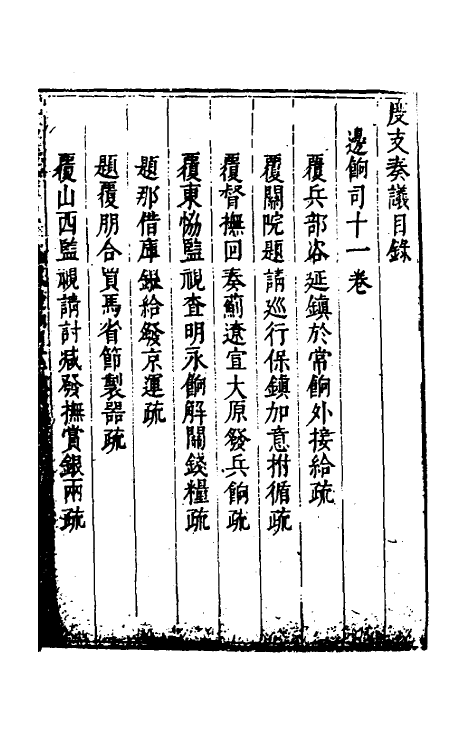 度支奏議目錄
邊餉司十一卷
覆兵部咨延鎮於常餉外接給疏
覆關院題請巡行保鎮加意拊循疏
覆督撫回奏薊遼宣大原發兵餉疏
覆東協監視查明永餉解關錢糧疏
題那借庫銀給發京運疏
題覆朋合買馬省節製器疏
覆山西監視請討減發撫賞銀兩疏